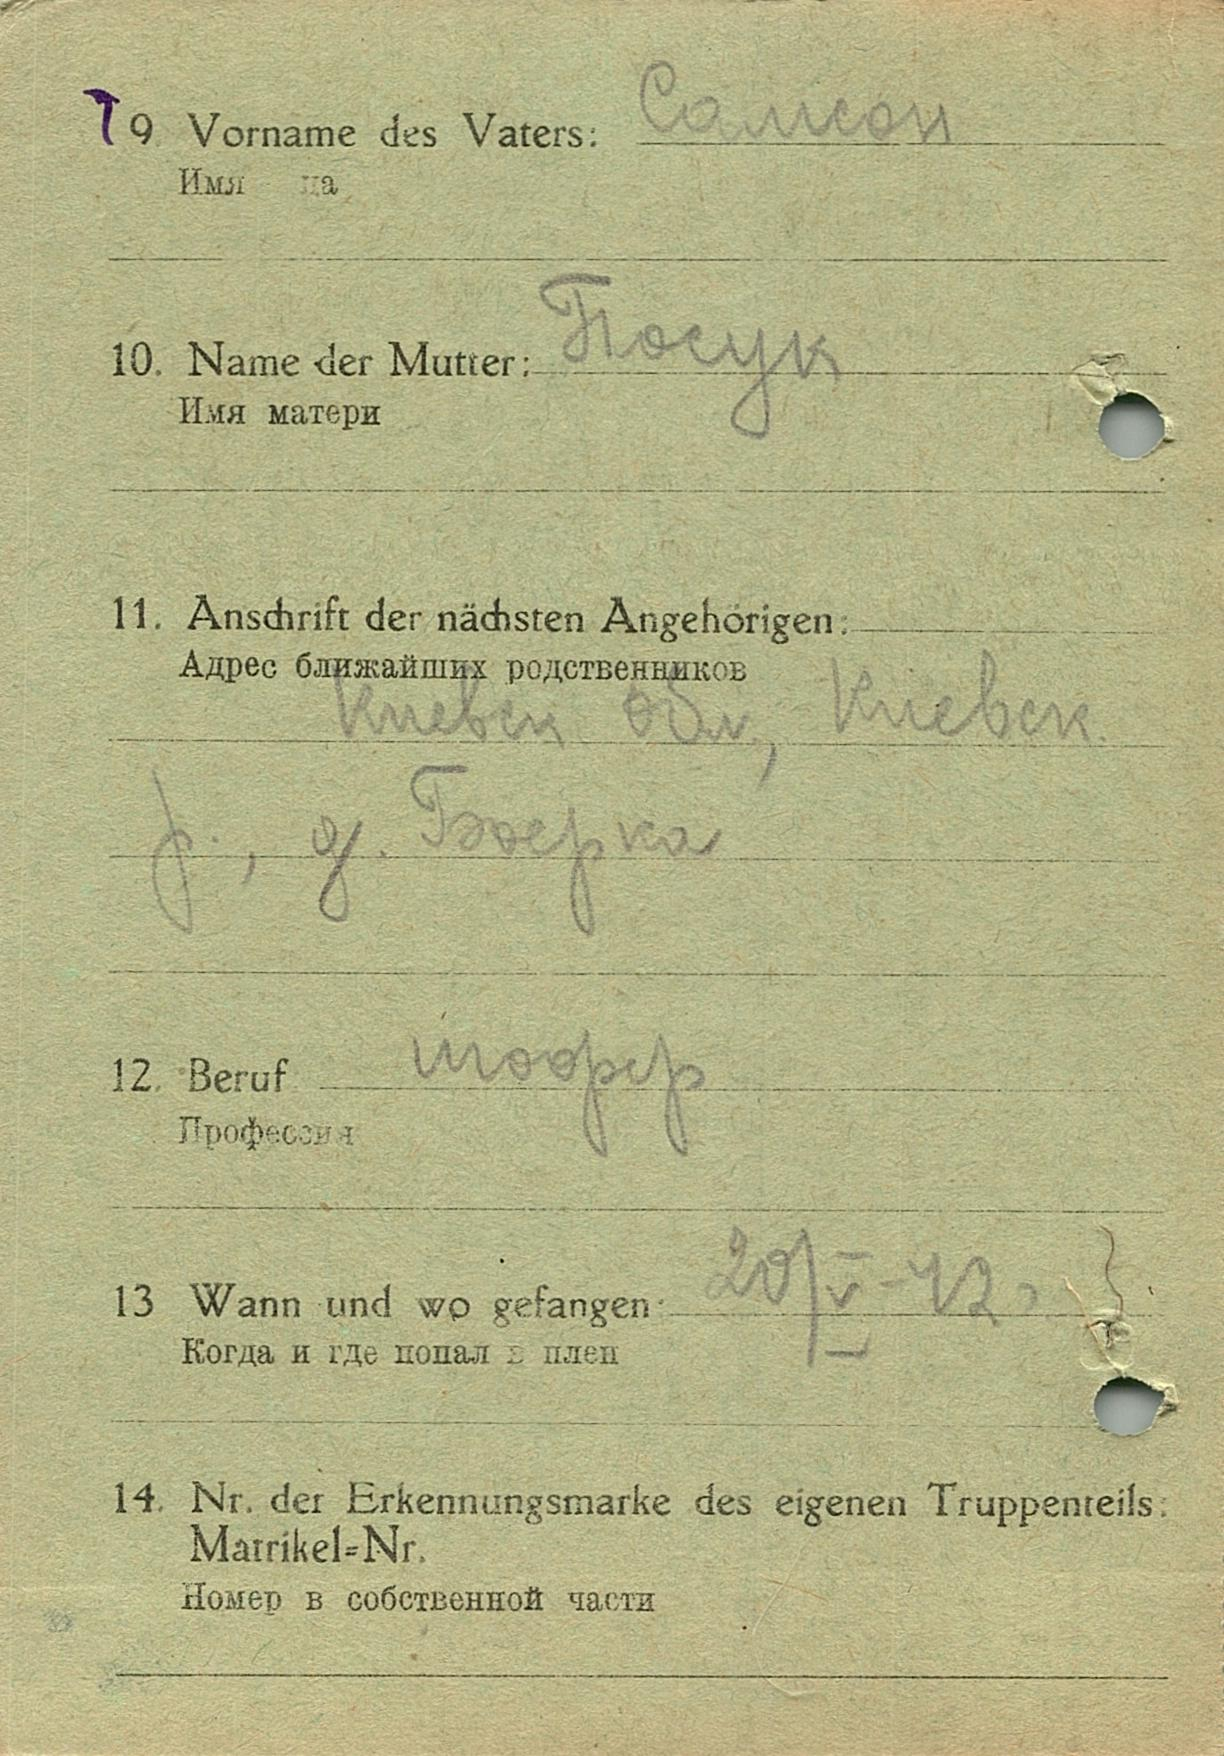 9 Vorname des Vaters: Самсон
Имя ца
10. Name der Mutter: Посук
Имя матери
11. Anschrift der nächsten Angehörigen:
Адрес ближайших родственников
Киевск обл, Киевск.
р., д. Боерка
12. Beruf шофер
Профессия
13 Wann und wo gefangen: 20/V-42
Когда и где попал в плен
14. Nr. der Erkennungsmarke des eigenen Truppenteils:
Matrikel=Nr.
Номер в собственной части